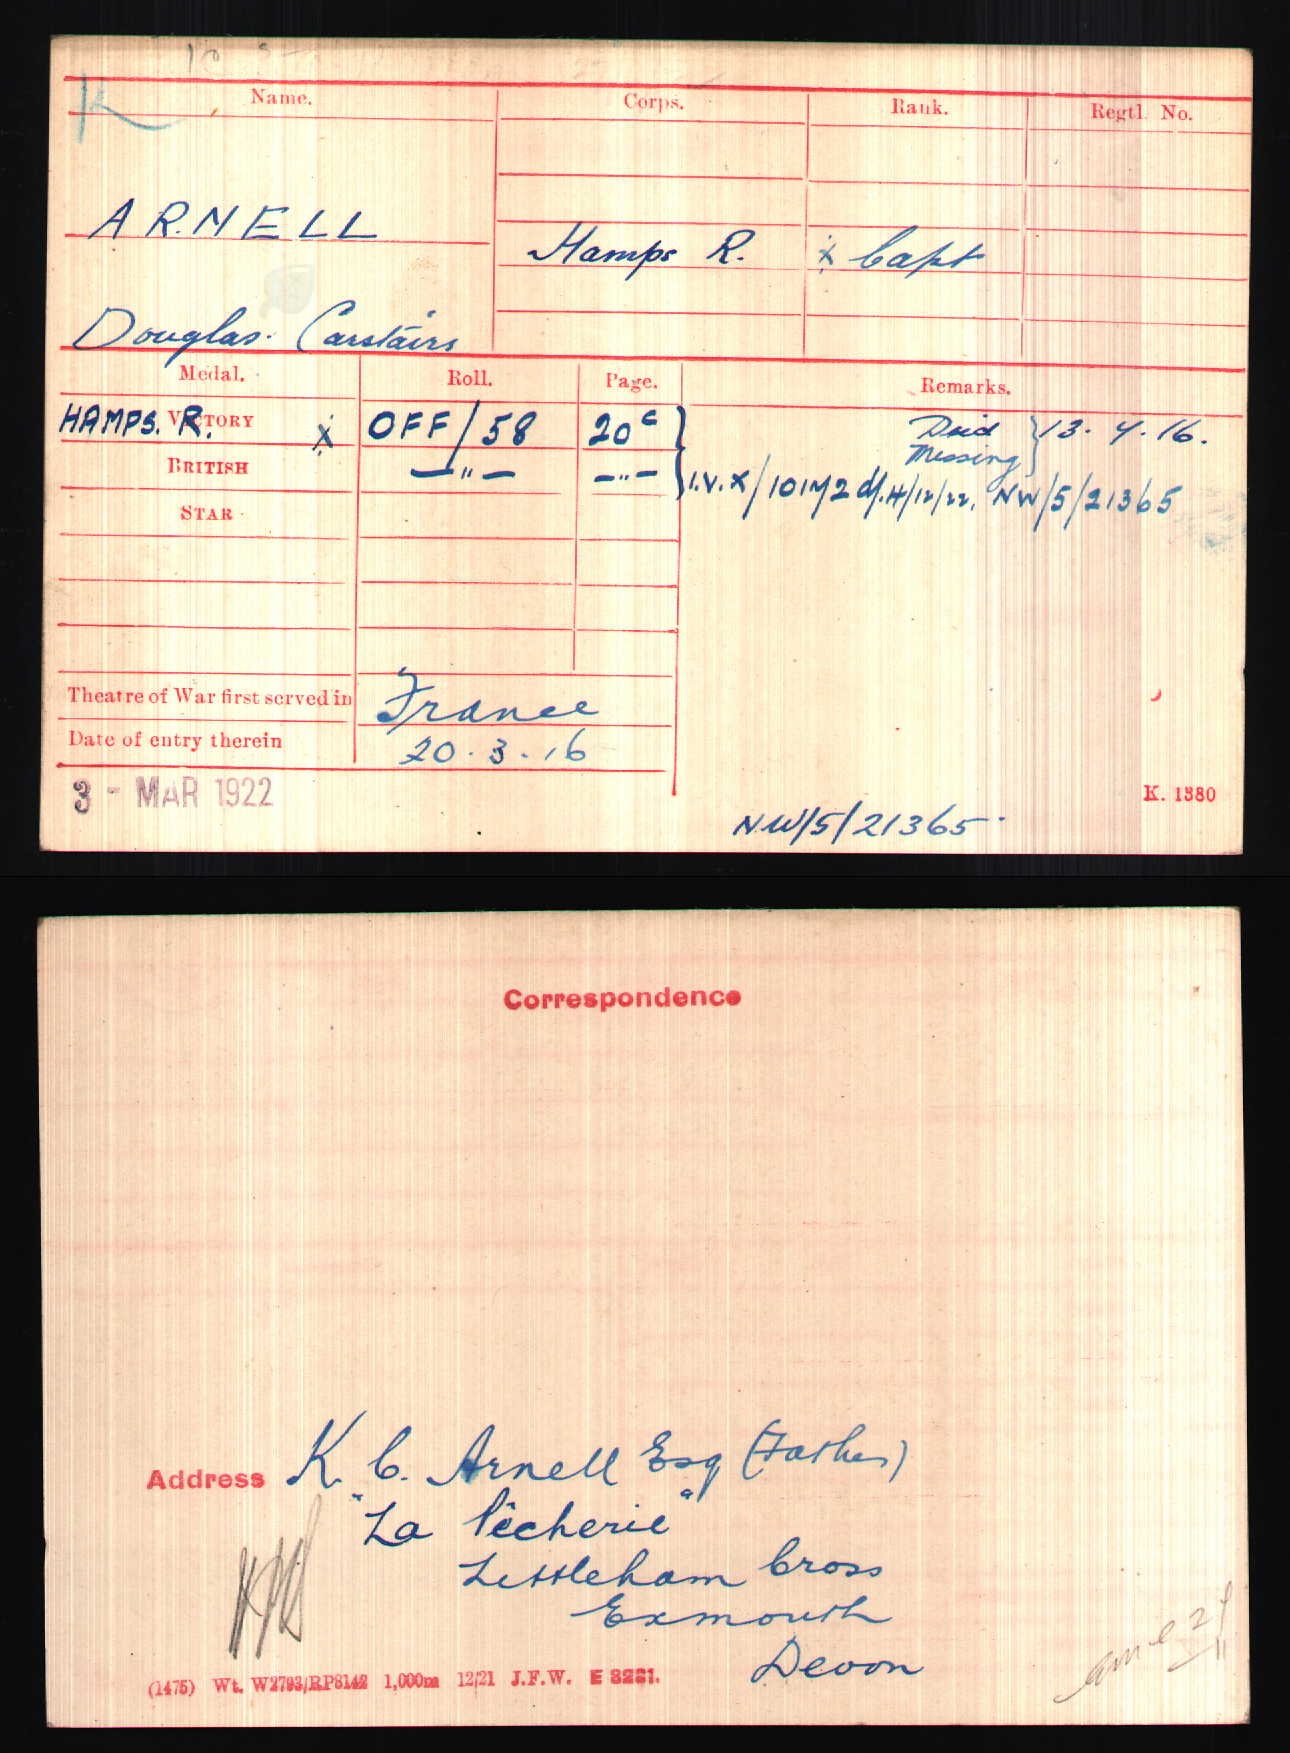 K
Name. Corps. Rank. Regtl. No.
ARNELL
Hamps R. x Capt
Douglas. Carstairs
Medal. Roll. Page. Remarks.
HAMPS. R. VICTORY x OFF/58 20c Died 13.4.16.
Missing
BRITISH —"— —"— I.V.X/
NW/5/21365
STAR
Theatre of War first served in France
Date of entry therein 20.3.16
3 - MAR 1922
K. 1380
NW/5/21365.
Correspondence
Address K. C. Arnell Esq (Father)
"La Pêcherie"
Littleham Cross
Exmouth
Devon
(1475) Wt. W2793/RP8142 1,000m 12/21 J.F.W. E 8281.